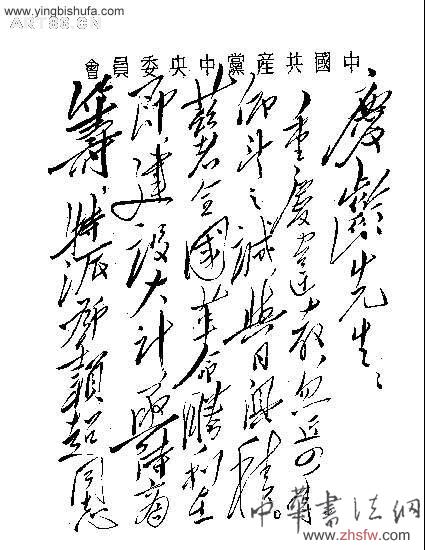 www.yingbishufa.com
ART86.CN
中國共產黨中央委員會
慶齡先生：
重慶違教，忽近四年。
仰望之誠，與日俱積。
茲者全國革命勝利在
即，建設大計，亟待商
籌，特派鄧穎超同志
中華書法網
www.zhsfw.com